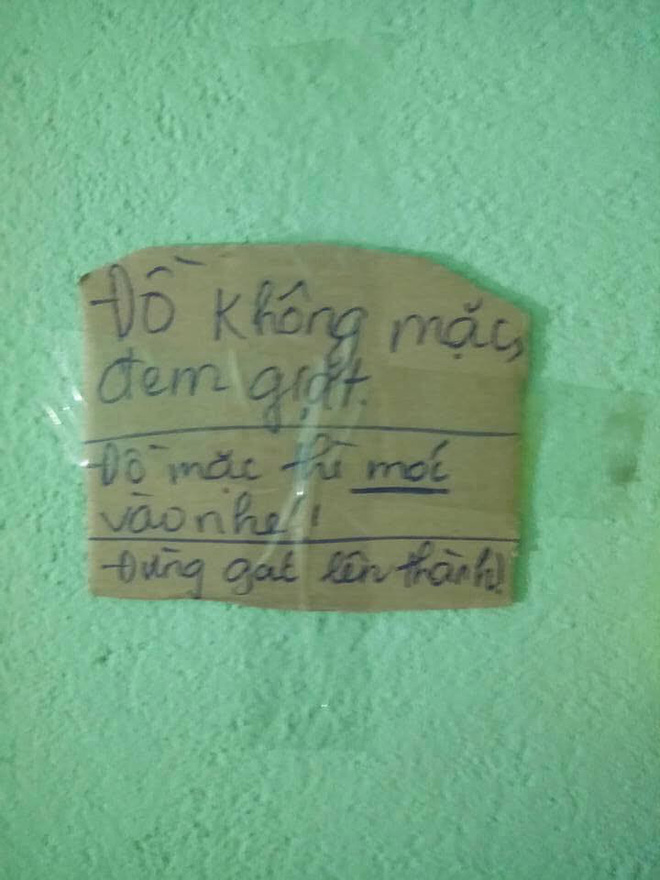 Đồ không mặc,
đem giặt.
Đồ mặc thì móc
vào nhé!
Đừng gạt lên thành!